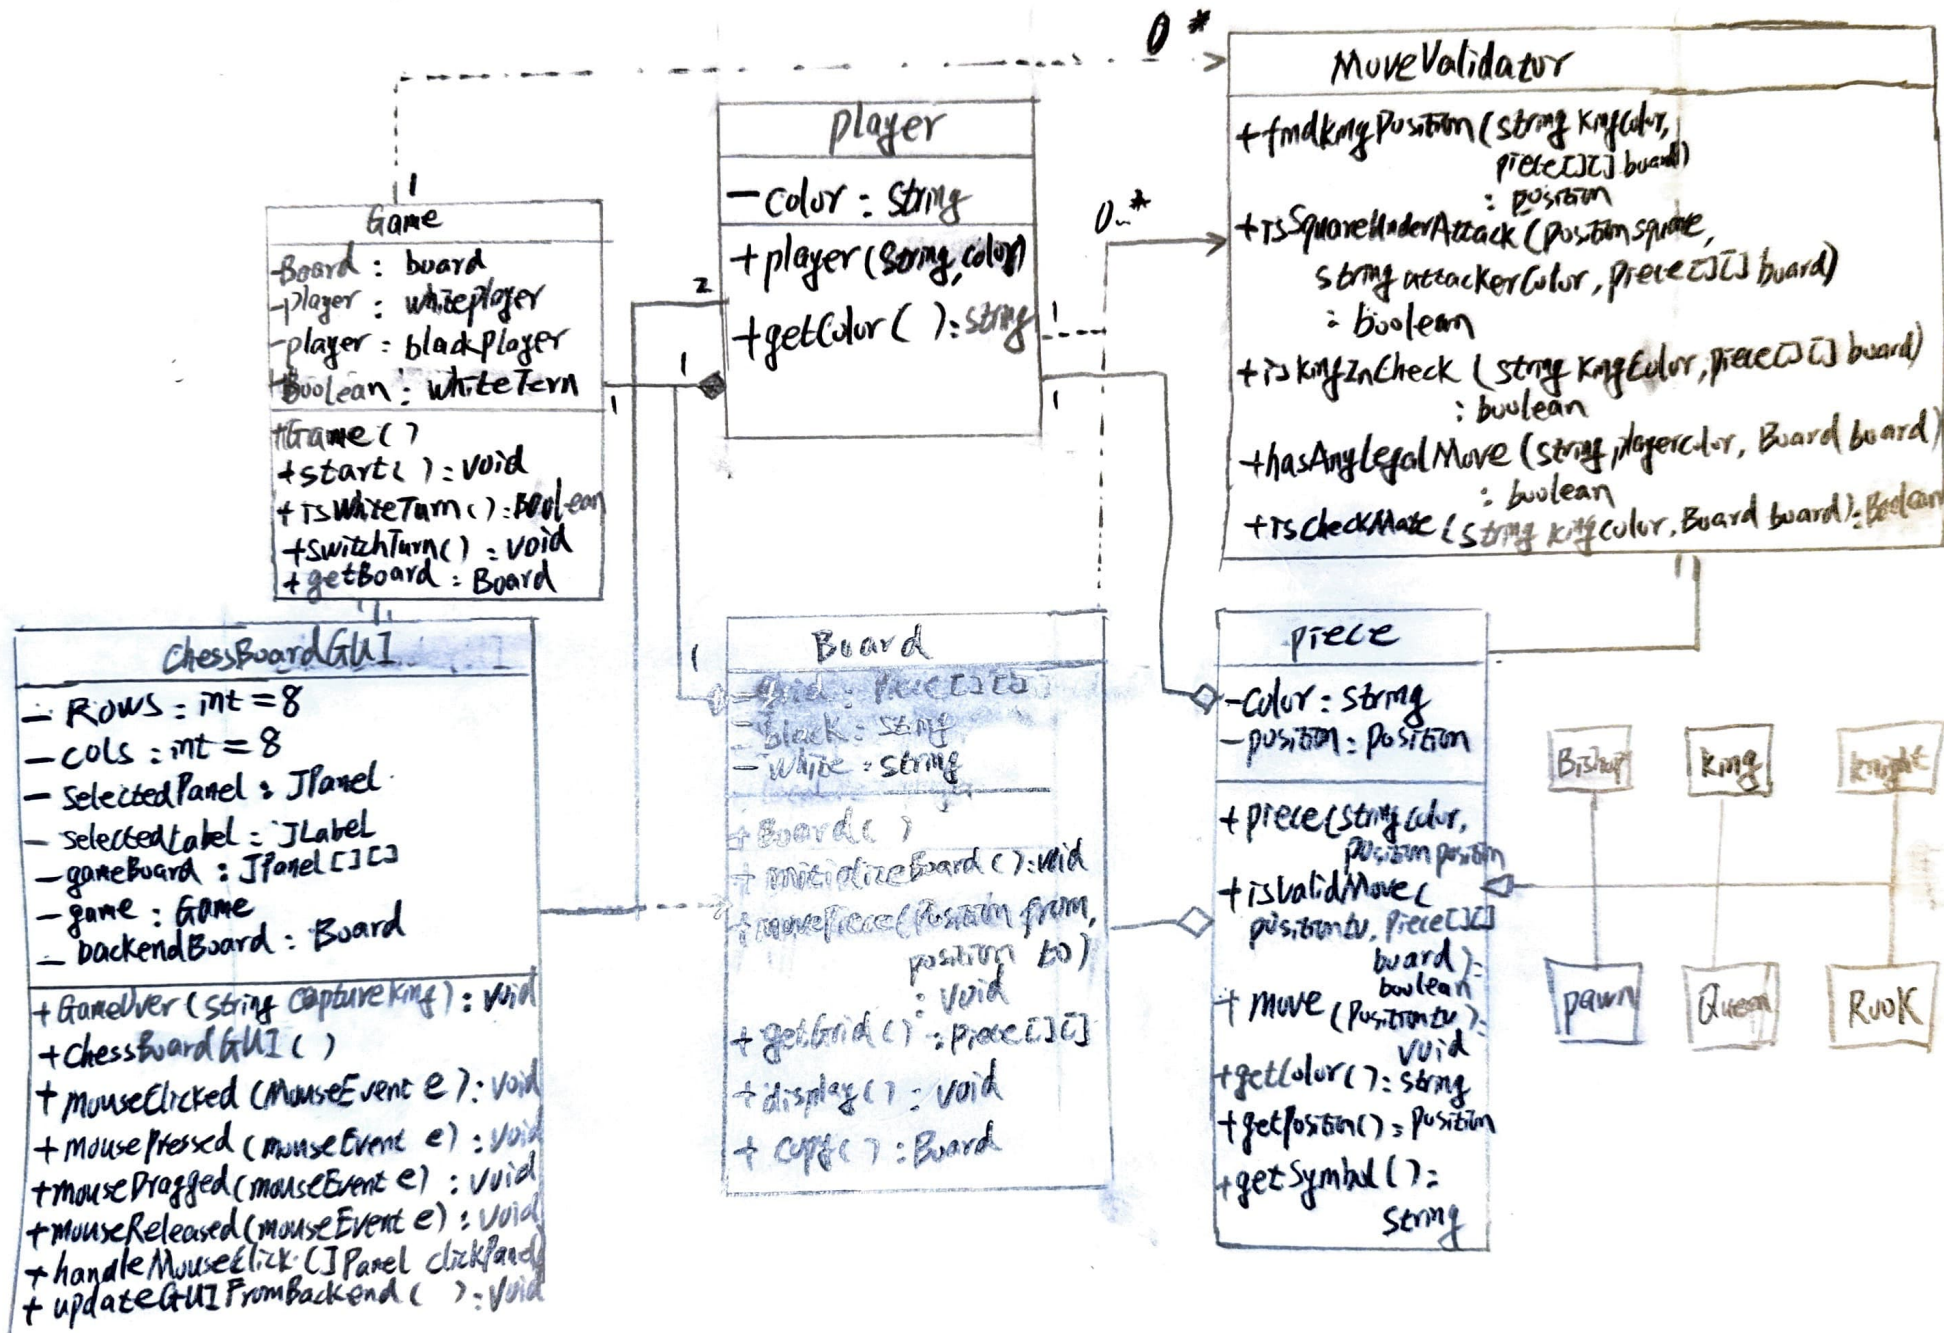 0 *
MoveValidator
+findkingPosition(string KingColor,
piece[][] board)
: position
+isSquareUnderAttack(position square,
string attackerColor, piece[][] board)
: boolean
+isKingInCheck (string KingColor, piece[][] board)
: boolean
+hasAnyLegalMove (string playercolor, Board board)
: boolean
+isCheckMate (string king color, Board board): Boolean
1
player
- color : string
+player(string, color)
+getColor( ): string
2
1
1
1
0..*
1
Game
-Board : board
-player : whiteplayer
-player : blackPlayer
-Boolean : whiteTern
+Game( )
+start( ) : void
+isWhiteTurn( ) : Boolean
+switchTurn() : void
+getBoard : Board
1
1
ChessBoardGUI
- ROWS : int = 8
- COLS : int = 8
- SelectedPanel : JPanel
- SelectedLabel : JLabel
- gameBoard : JPanel[][]
- game : Game
- backendBoard : Board
+GameOver (string captureKing) : void
+ChessBoardGUI( )
+mouseClicked (MouseEvent e) : void
+mousePressed (mouseEvent e) : void
+mouseDragged(mouseEvent e) : void
+mouseReleased(mouseEvent e) : void
+handleMouseClick (JPanel clickPanel)
+updateGUIFromBackend ( ) : void
1
Board
- grid : Piece[][]
- black : string
- white : string
+Board( )
+initializeBoard ( ) : void
+movePiece(Position from,
position to)
: void
+getGrid() : piece[][]
+display( ) : void
+copy( ) : Board
1
piece
-color : string
-position : position
+piece(string color,
position position
+isValidMove(
position to, Piece[][]
board) :
boolean
+move (Position to) :
void
+getColor( ) : string
+getPosition() : position
+getSymbol( ) :
string
Bishop
king
knight
pawn
Queen
Rook